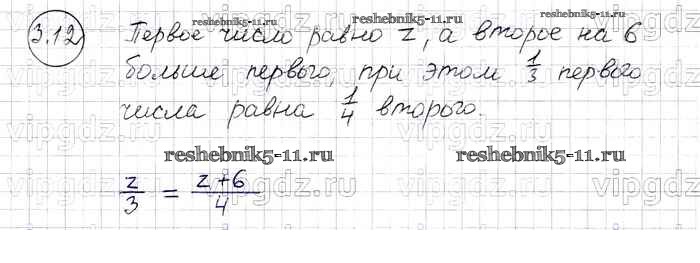 3.12 Первое число равно z, а второе на 6
больше первого, при этом 1/3 первого
числа равна 1/4 второго.
z/3 = z+6/4
reshebnik5-11.ru
reshebnik5-11.ru
reshebnik5-11.ru
reshebnik5-11.ru
vipgdz.ru
vipgdz.ru
vipgdz.ru